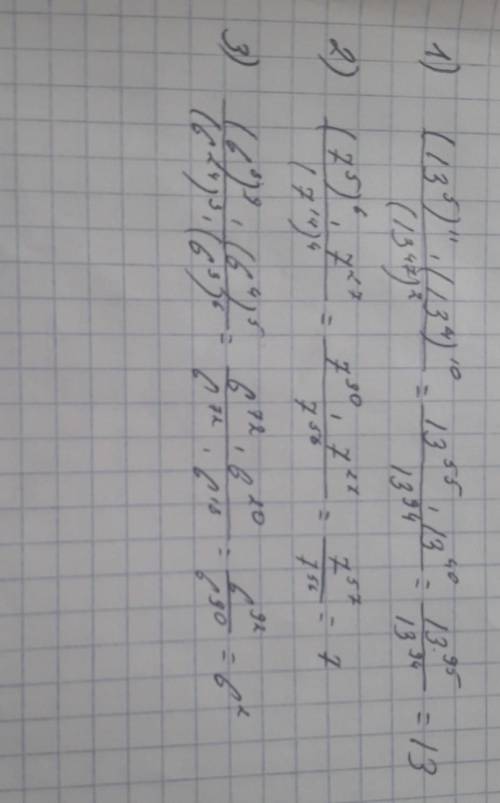 1) ((13⁵)¹¹ · (13⁴)¹⁰)/((13⁴⁷)²) = (13⁵⁵ · 13⁴⁰)/(13⁹⁴) = 13⁹⁵/13⁹⁴ = 13
2) ((7⁵)⁶ · 7²⁷)/((7¹⁴)⁴) = (7³⁰ · 7²⁷)/(7⁵⁶) = 7⁵⁷/7⁵⁶ = 7
3) ((b⁸)⁹ · (b⁴)⁵)/((b²⁴)³ · (b³)⁶) = (b⁷² · b²⁰)/(b⁷² · b¹⁸) = b⁹²/b⁹⁰ = b²